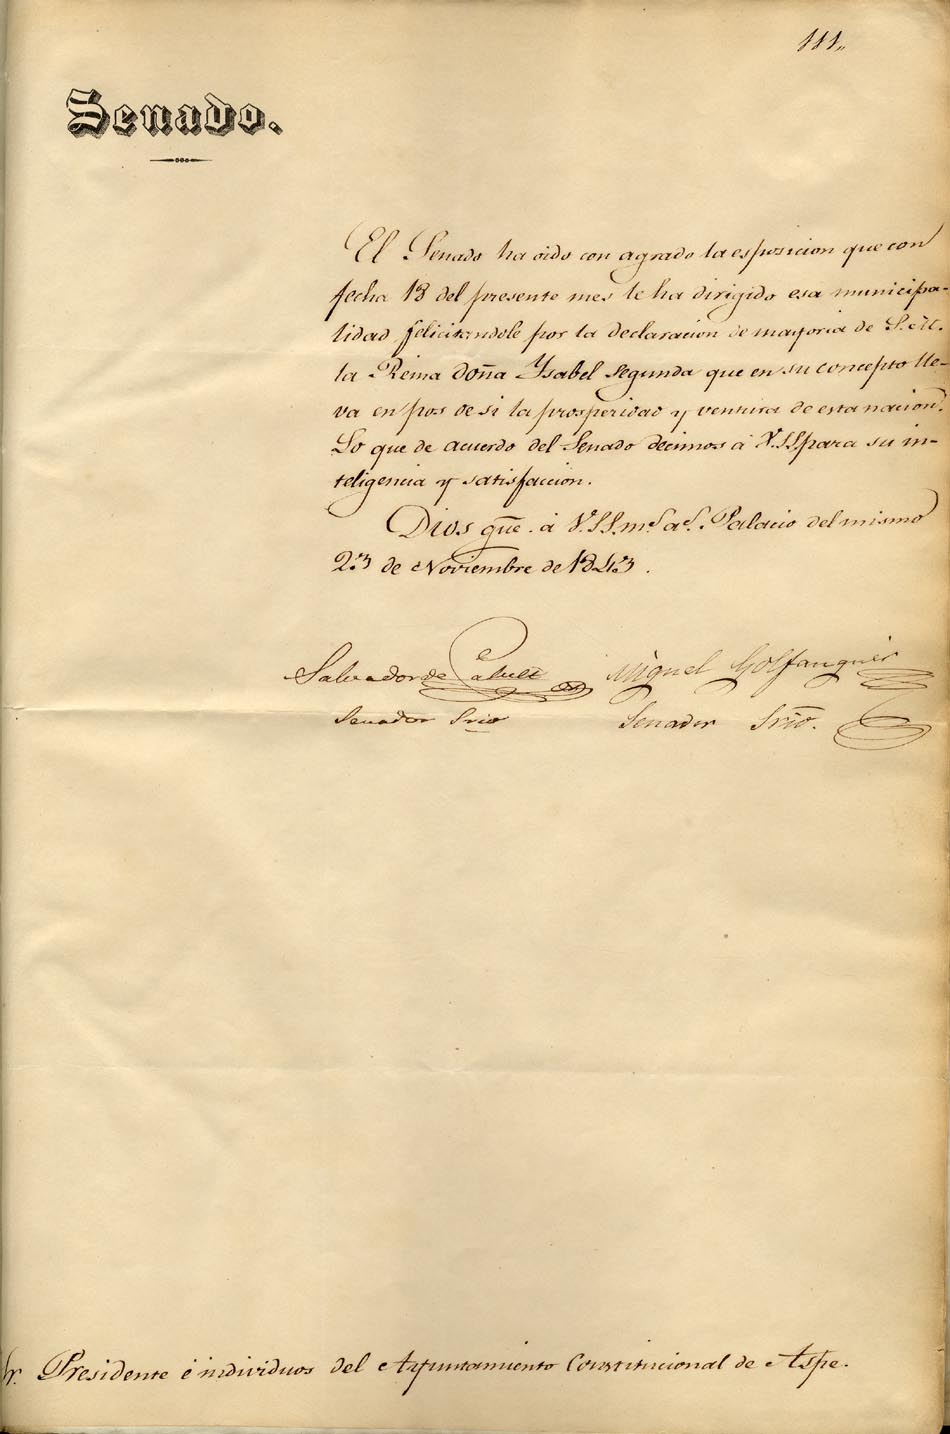 111,,
Senado.
El Senado ha oido con agrado la esposicion que con
fecha 18 del presente mes le ha dirigido esa municipa-
lidad felicitandole por la declaracion de mayoria de S. M.
la Reina doña Ysabel Segunda que en su concepto lle-
va en pos de si la prosperidad y ventura de esta nacion.
Lo que de acuerdo del Senado decimos á V.SS para su in-
teligencia y satisfaccion.
Dios gũe. á V.SS. ms. as. Palacio del mismo
23 de Noviembre de 1843.
Salvador de Calvet Miguel Golfanguer
Senador Srio Senador Srio.
Sr. Presidente é individuos del Ayuntamiento Constitucional de Aspe.